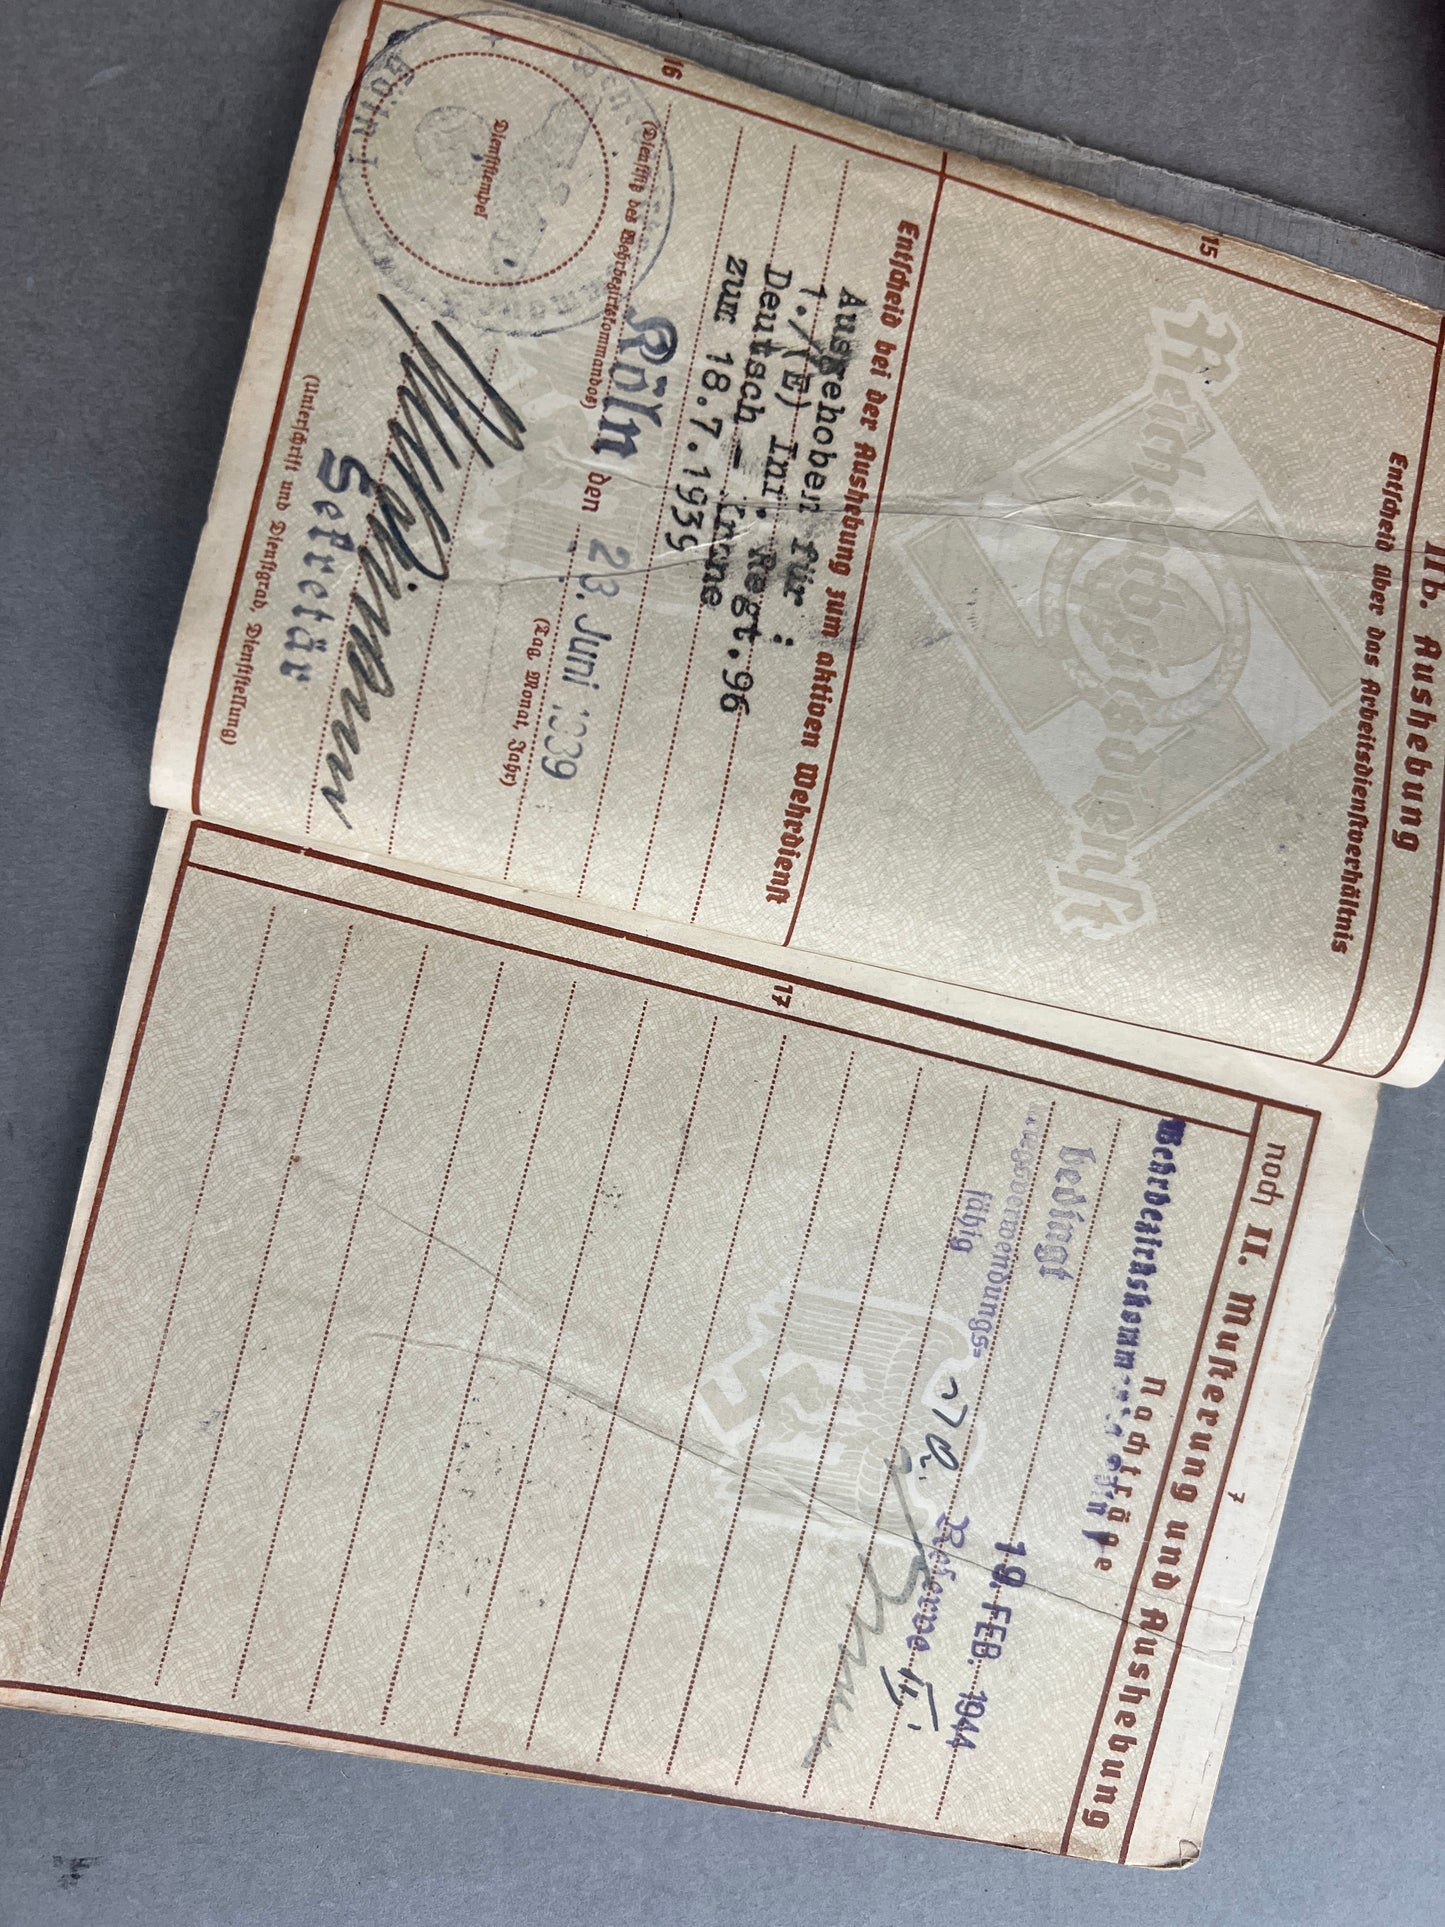 IIb. Aushebung
Entscheid über das Arbeitsdienstverhältnis
15
Reichsarbeitsdienst
Entscheid bei der Aushebung zum aktiven Wehrdienst
Ausgehoben für :
1./(E) Inf. Regt. 96
Deutsch - Krone
zum 18.7.1939
16
Köln den 28. Juni 1939
(Dienstsitz des Wehrbezirkskommandos)
(Tag, Monat, Jahr)
Dienststempel
Köln I
Sekretär
(Unterschrift und Dienstgrad, Dienststellung)
7
noch II. Musterung und Aushebung
Nachträge
Wehrbezirkskommando
bedingt
19. FEB. 1944
kriegsverwendungs-
fähig
Reserve II
17